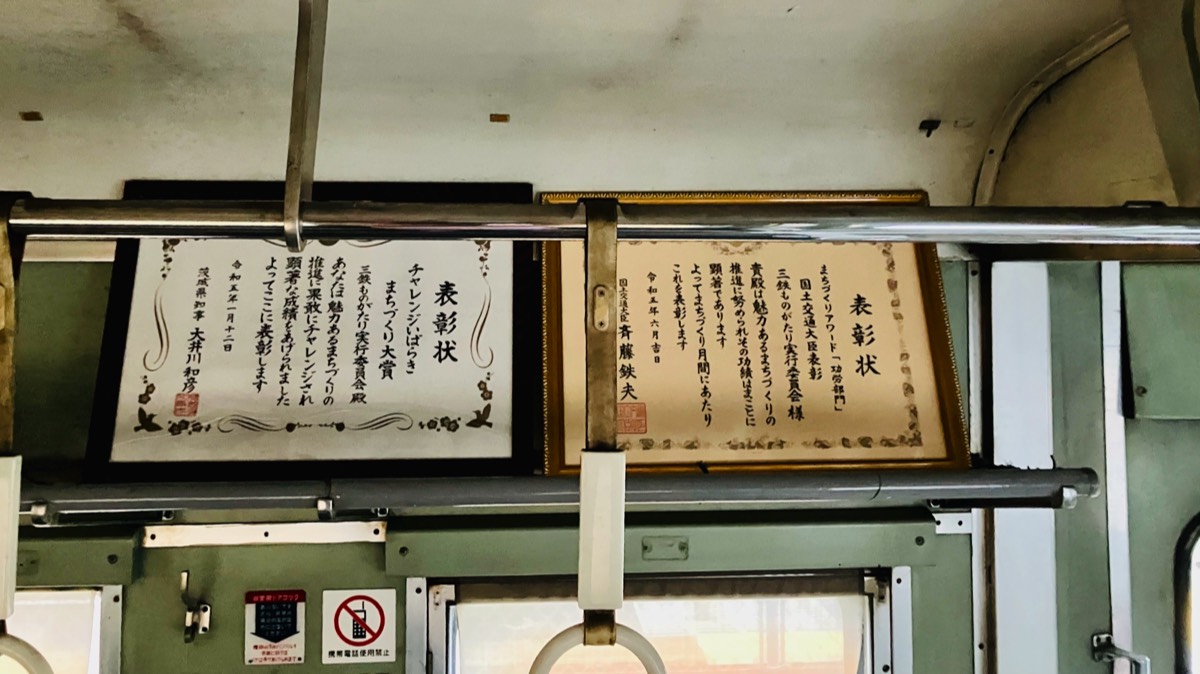 表彰状
チャレンジいばらき
まちづくり大賞
三鉄ものがたり実行委員会 殿
あなたは魅力あるまちづくりの
推進に果敢にチャレンジされ
顕著な成績をあげられました
よってここに表彰します
令和五年一月十二日
茨城県知事 大井川 和彦
表彰状
まちづくりアワード「功労部門」
国土交通大臣表彰
三鉄ものがたり実行委員会 様
貴殿は魅力あるまちづくりの
推進に努められその功績はまことに
顕著であります
よってまちづくり月間にあたり
これを表彰します
令和五年六月吉日
国土交通大臣 斉藤 鉄夫
携帯電話使用禁止